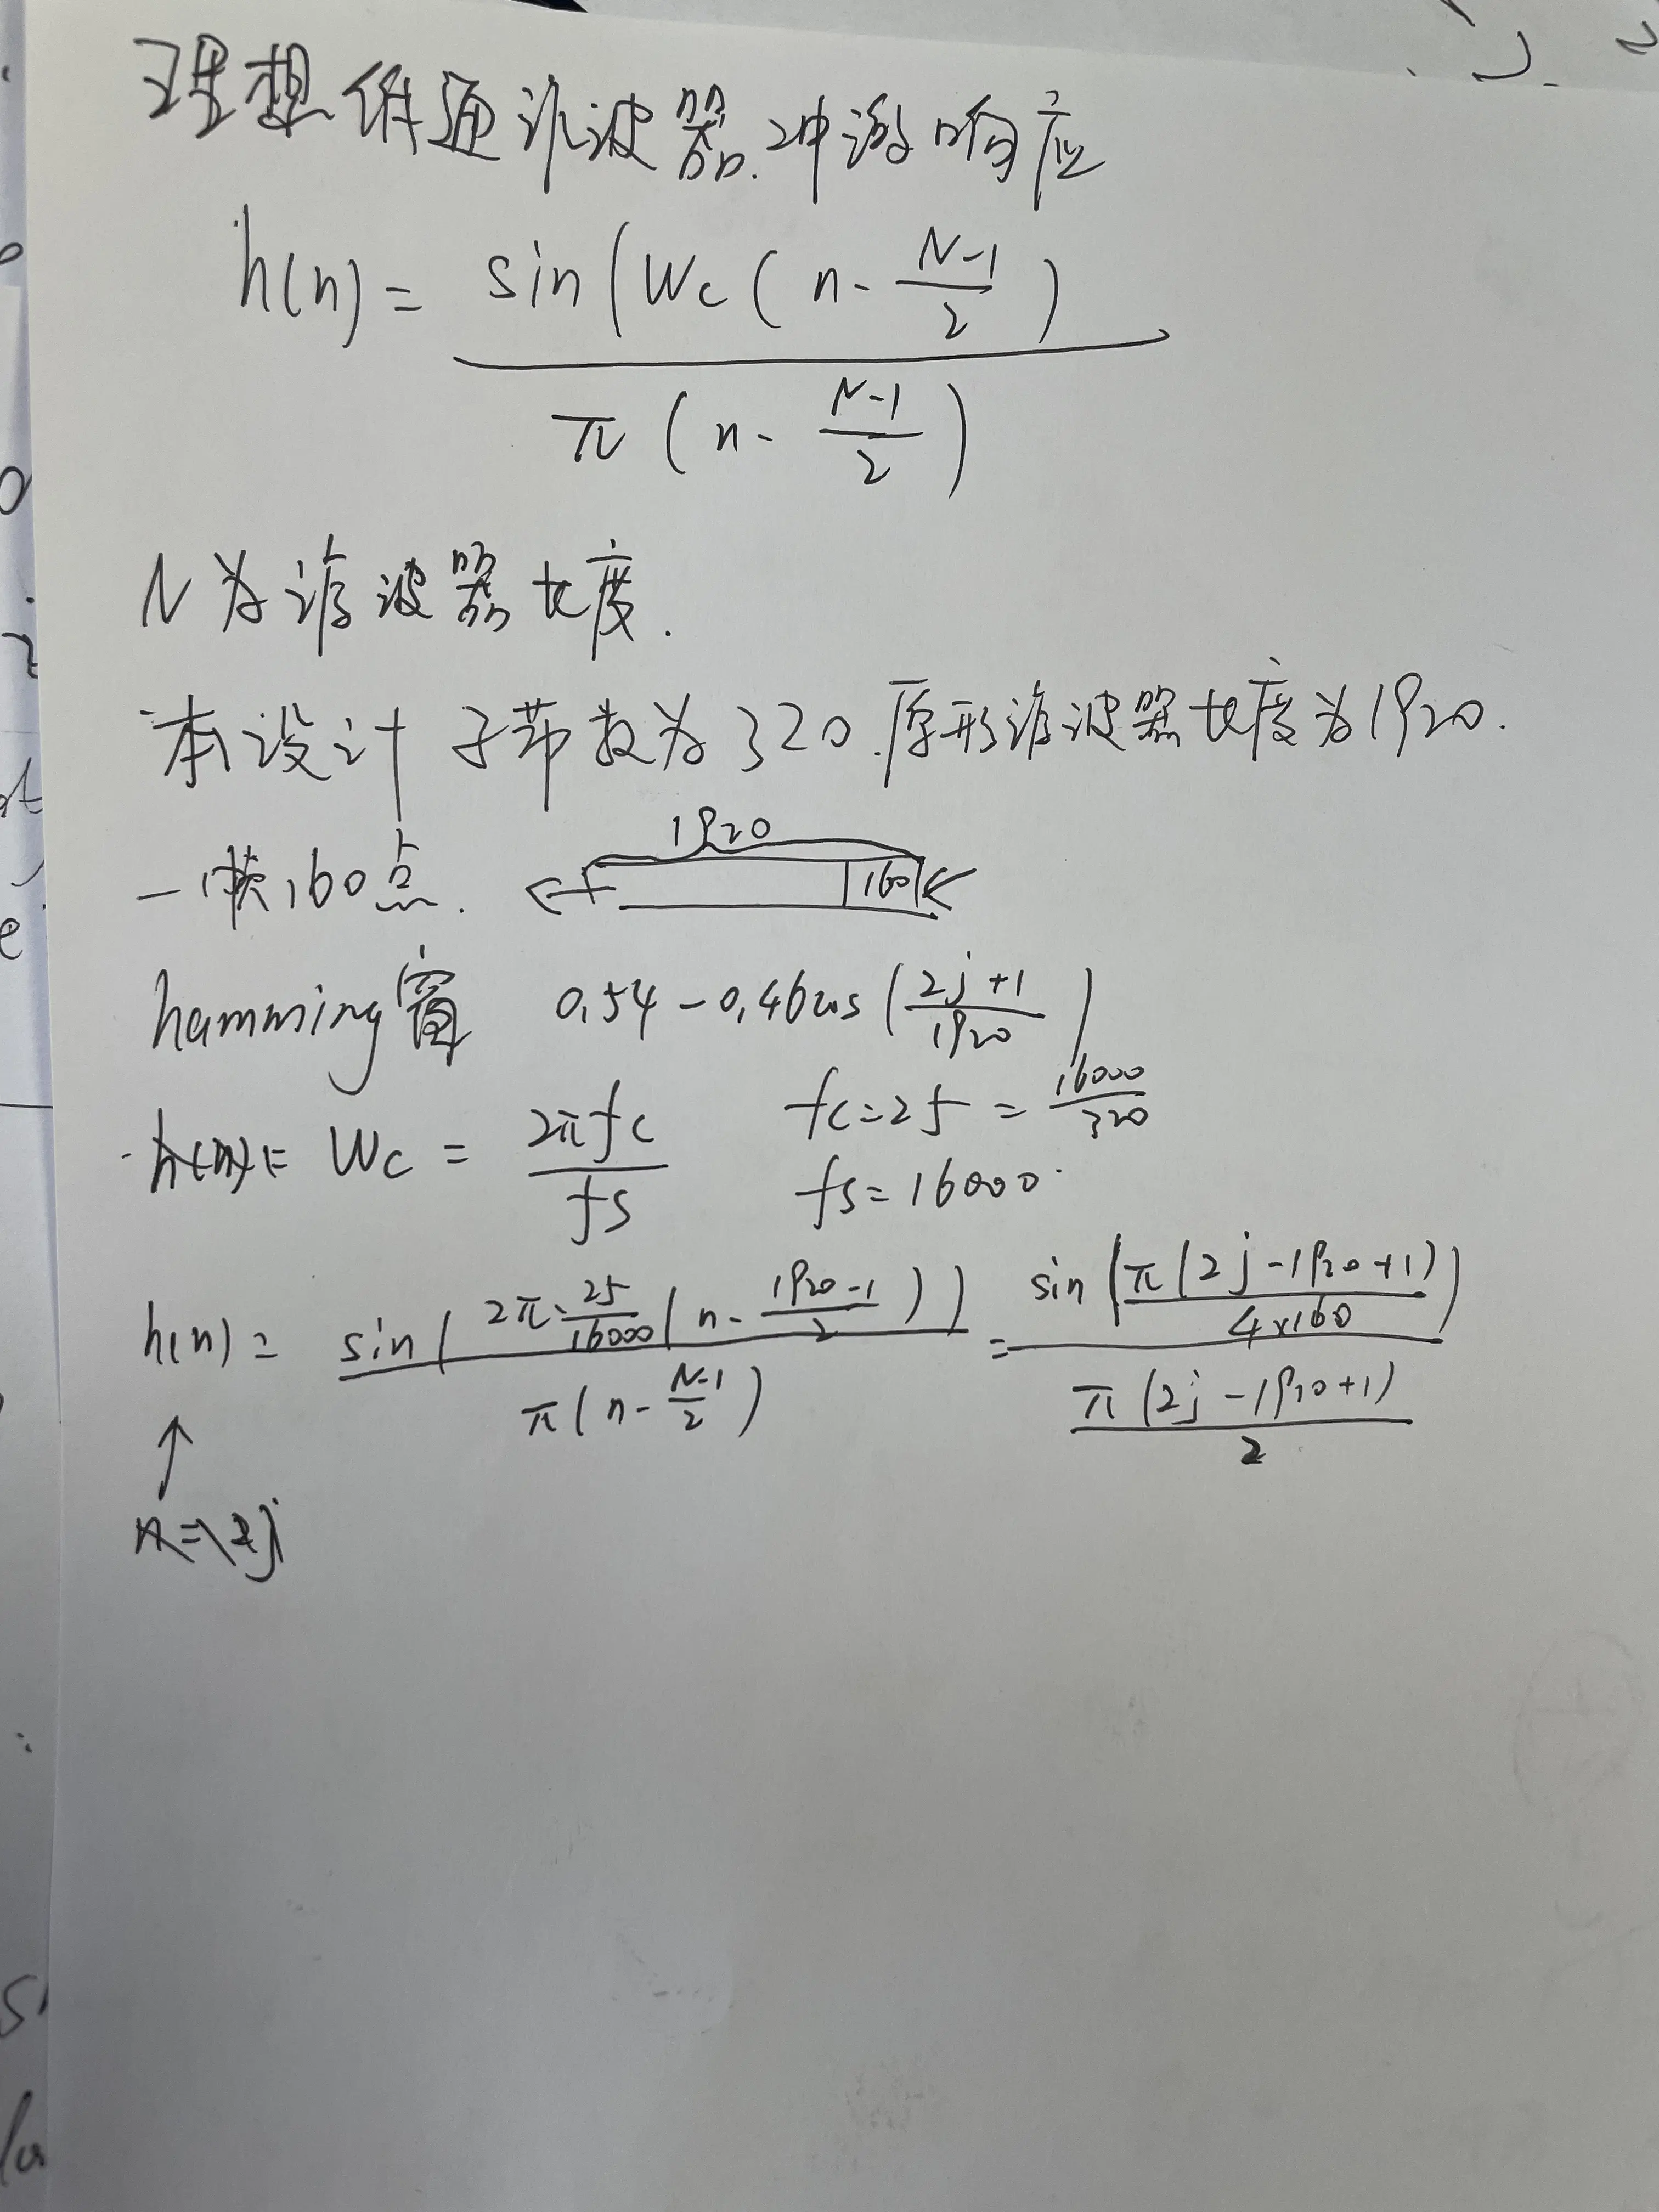 理想低通滤波器.冲激响应
h(n) = sin(Wc(n-(N-1)/2) / π(n-(N-1)/2)
N为滤波器长度.
本设计子带数为320.原形滤波器长度为1920.
一帧160点. 1920 160
hamming窗 0.54-0.46cos((2j+1)/1920)
Wc = 2πfc/fs fc=25=16000/320
fs=16000
h(n) = sin(2π·25/16000(n-(1920-1)/2)) / π(n-(N-1)/2) = sin(π(2j-1920+1)/4×160) / (π(2j-1920+1)/2)
↑